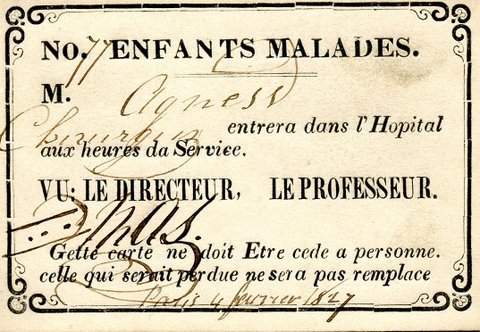 No. 77 ENFANTS MALADES.
M. Agness
Chirurgien entrera dans l'Hopital
aux heures da Service.
VU: LE DIRECTEUR, LE PROFESSEUR.
Gette carte ne doit Etre cede a personne.
celle qui serait perdue ne sera pas remplace
Paris 4 fevrier 1827